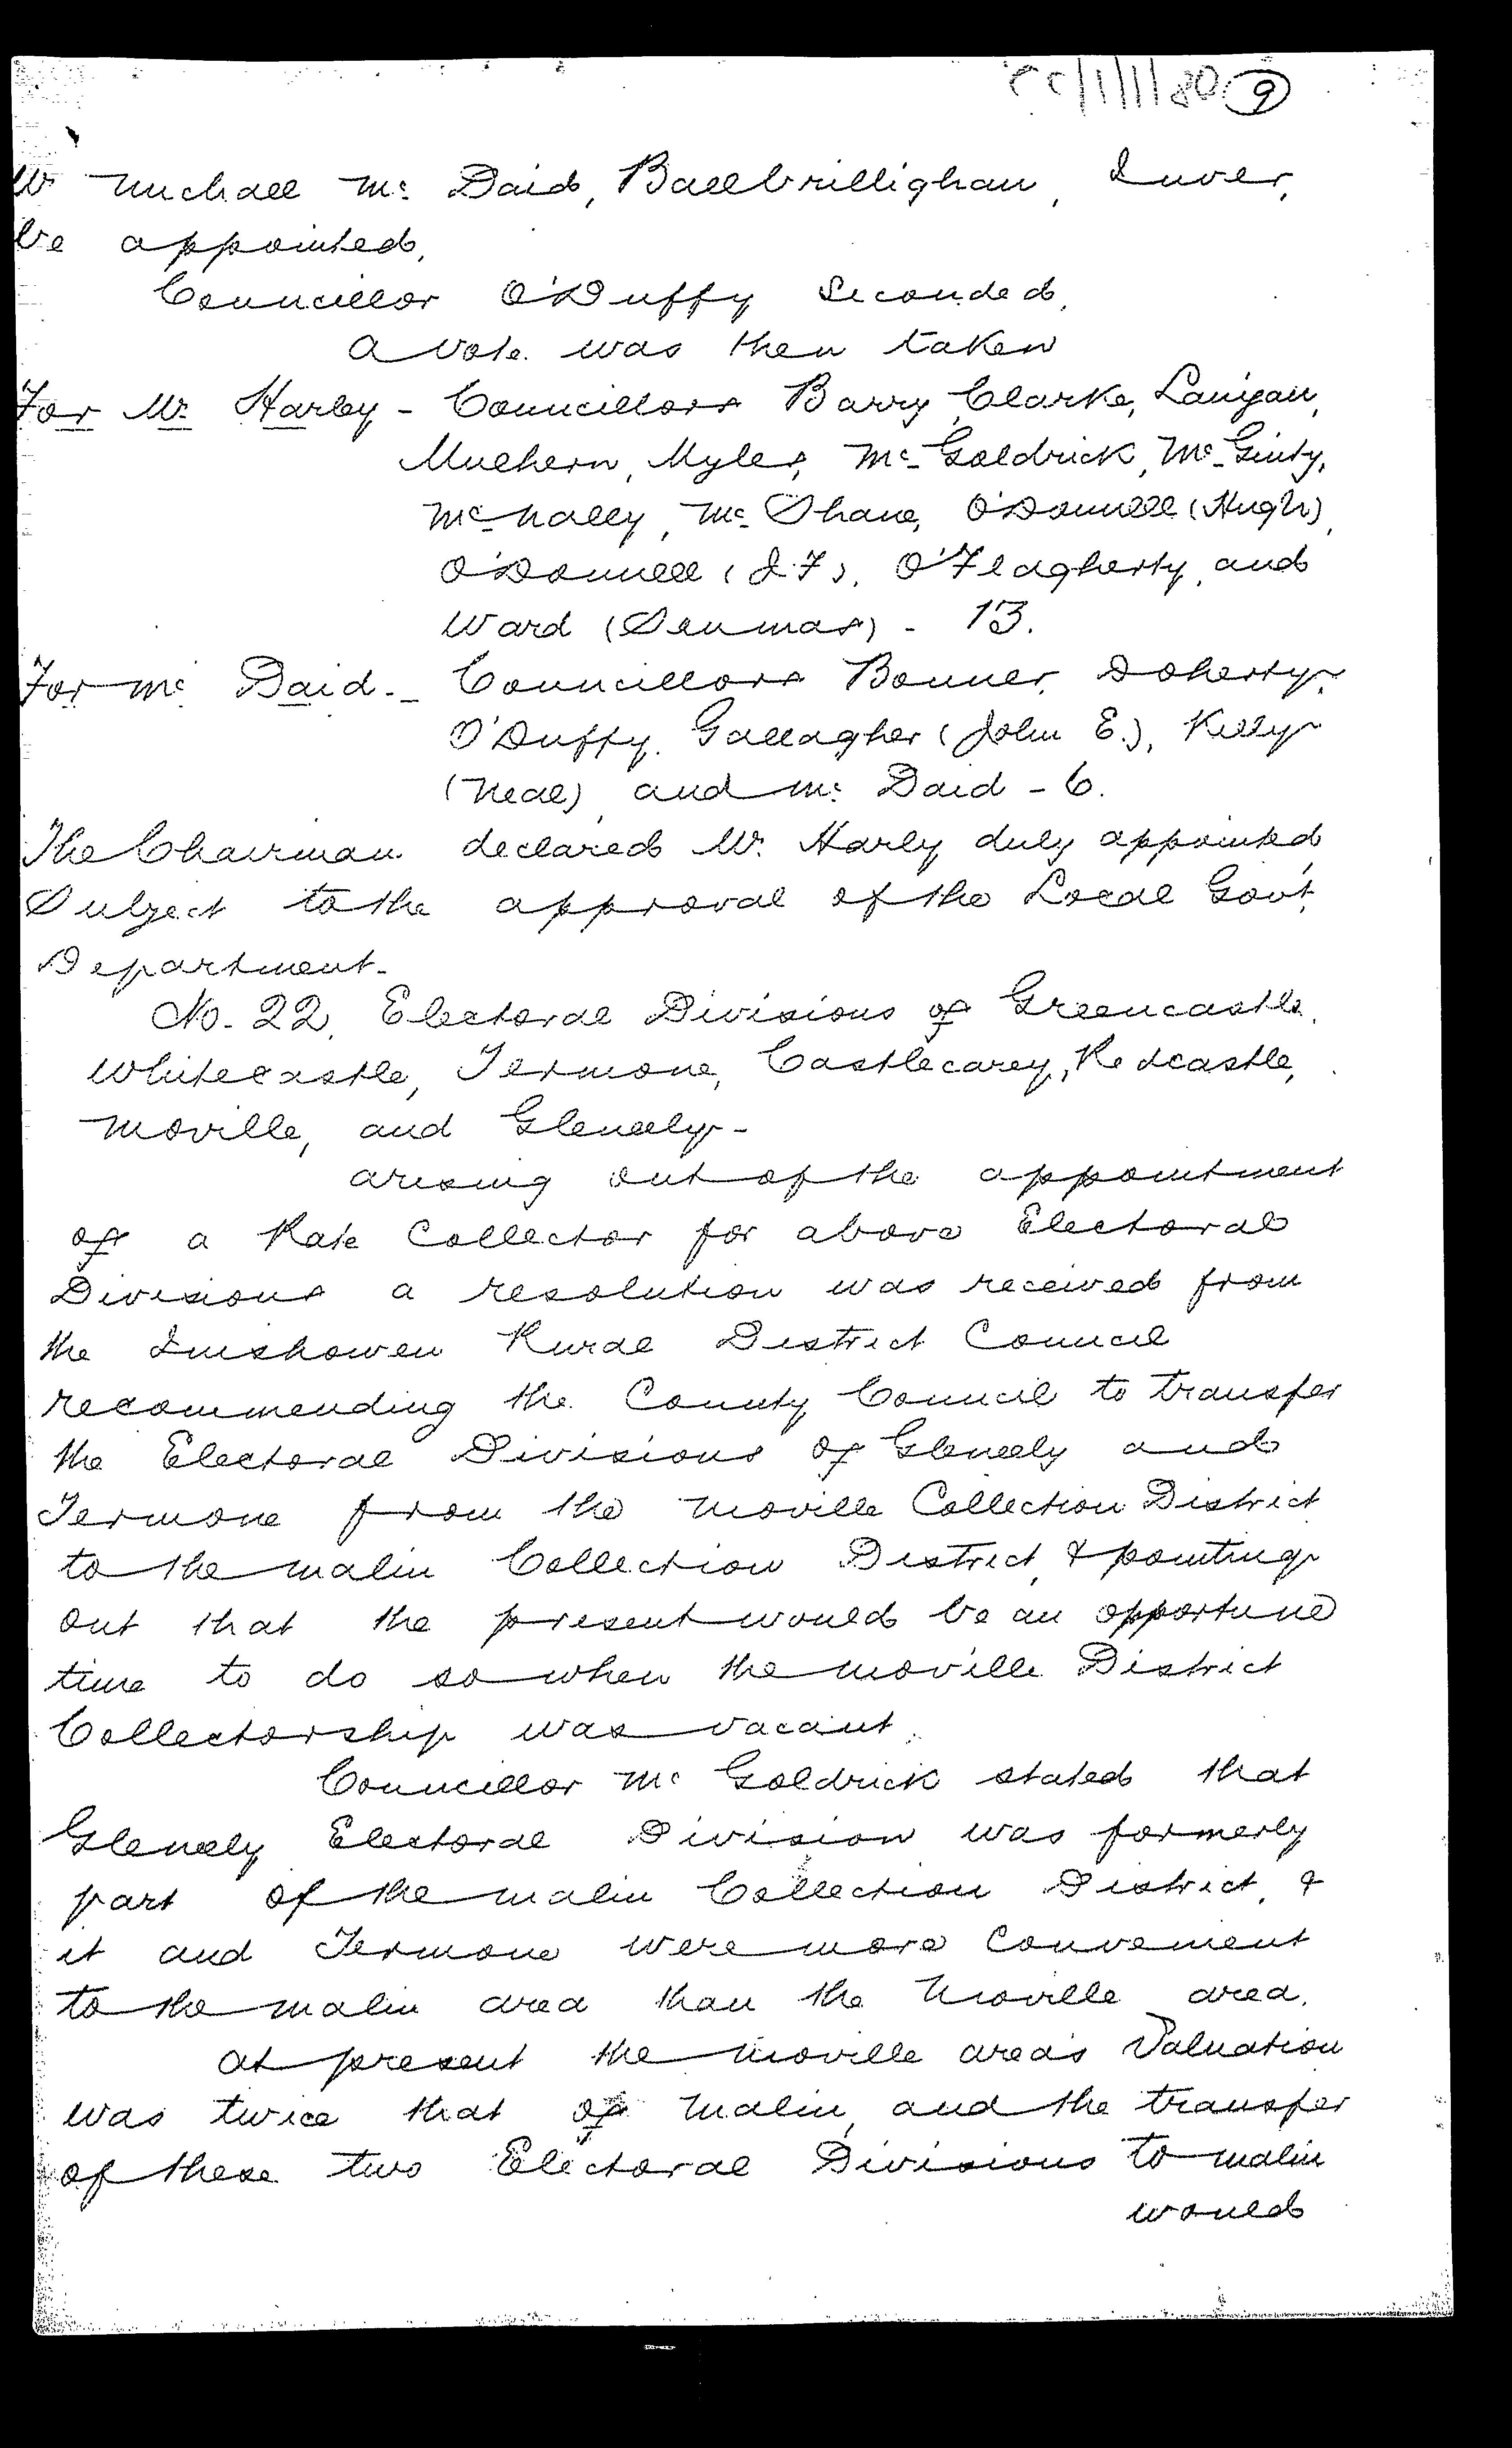 CC/1/1/80 9
Mr Michael Mc Daid, Ballbrillighan, Inver,
be appointed,
Councillor O'Duffy Seconded,
A vote was then taken
For Mr. Harley - Councillors Barry, Clarke, Lanigan,
Mulhern, Myles, Mc Goldrick, Mc Ginty,
Mc Nally, Mc Shane, O'Donnell (Hugh),
O'Donnell (J.F), O'Flagherty, and
Ward (Seumas) - 13.
For Mc Daid - Councillors Bonner, Doherty,
O'Duffy, Gallagher (John E.), Kelly
(Neal), and Mc Daid - 6.
The Chairman declared Mr. Harly duly appointed,
Subject to the approval of the Local Govt.
Department.
No. 22, Electoral Divisions of Greencastle,
Whitecastle, Termone, Castlecarey, Redcastle,
Moville, and Gleneely -
Arising out of the appointment
of a Rate Collector for above Electoral
Divisions a resolution was received from
the Inishowen Rural District Council
recommending the County Council to transfer
the Electoral Divisions of Gleneely and
Termone from the Moville Collection District
to the Malin Collection District, & pointing
out that the present would be an opportune
time to do so when the Moville District
Collectorship was vacant.
Councillor Mc Goldrick stated that
Gleneely Electoral Division was formerly
part of the Malin Collection District, &
it and Termone were more convenient
to the Malin area than the Moville area.
At present the Moville area's Valuation
was twice that of Malin, and the transfer
of these two Electoral Divisions to Malin
would